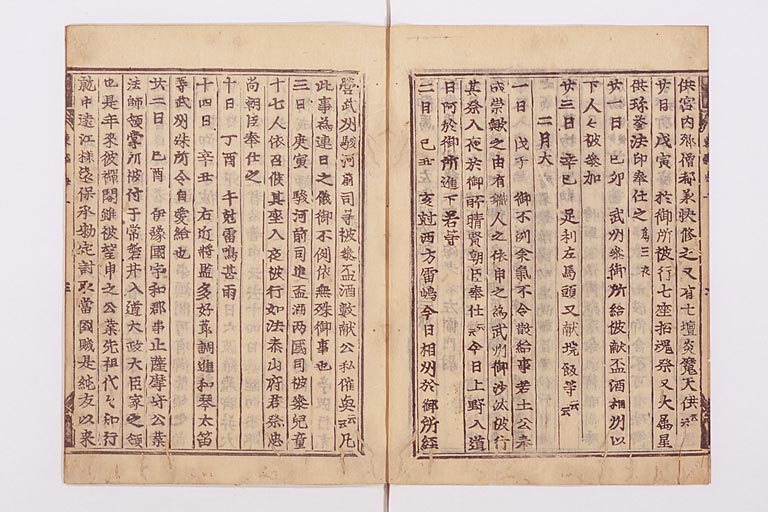 供宮内卿僧都兼快修之又有七壇炎魔天供云々
廿日 戊寅 於御所被行七座招魂祭又大属星
供珎誉法印奉仕之 為三夜
廿一日 己卯 武州参御所給被献盃酒相州以
下人々被参加
廿三日 辛巳 足利左馬頭又献垸飯等云々
二月大
一日 戊子 御不例余気不令散給事若土公奉
成祟歟之由有職人之依申之為武州御沙汰被行
其祭入夜於御前晴賢朝臣奉仕云々今日上野入道
日阿於御所進下若等
二日 己丑 亥尅西方雷鳴今日相州於御所経
営武州駿河前司等被参盃酒数献公私催興云々凡
此事為連日之儀御不例依無殊御事也
三日 庚寅 駿河前司進盃酒両國司被参兒童
十七人依召候其座入夜被行如法泰山府君祭忠
尚朝臣奉仕之
十日 丁酉 午尅雷鳴甚雨
十四日 辛丑 右近将監多好葺調進和琴太笛
等武州殊所令自愛給也
廿二日 己酉 伊豫國宇和郡事止薩摩守公業
法師領掌所被付于常磐井入道大政大臣家之領
也是年来彼禅閤雖被望申之公業先祖代々知行
就中遠江掾遠保承勅定討取當國賊是純友以来